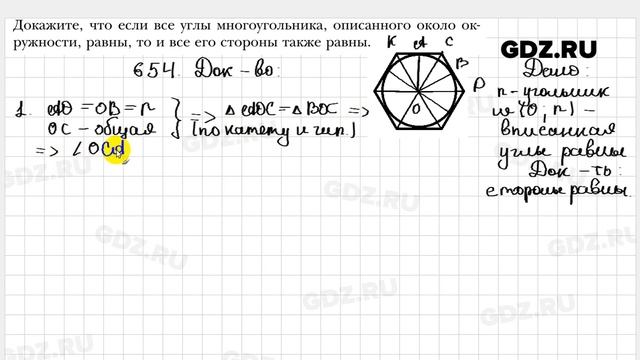 Докажите, что если все углы многоугольника, описанного около ок-
ружности, равны, то и все его стороны также равны.
654. Док-во:
1. AO = OB = r
OC - общая
=> △AOC = △BOC =>
(по катету и гип.)
=> ∠OCA
K A C
B
D
O
GDZ.RU
Дано:
n-угольник
w(O, r) -
вписанная
углы равны
Док-ть:
стороны равны.
GDZ.RU
GDZ.RU
GDZ.RU
GDZ.RU